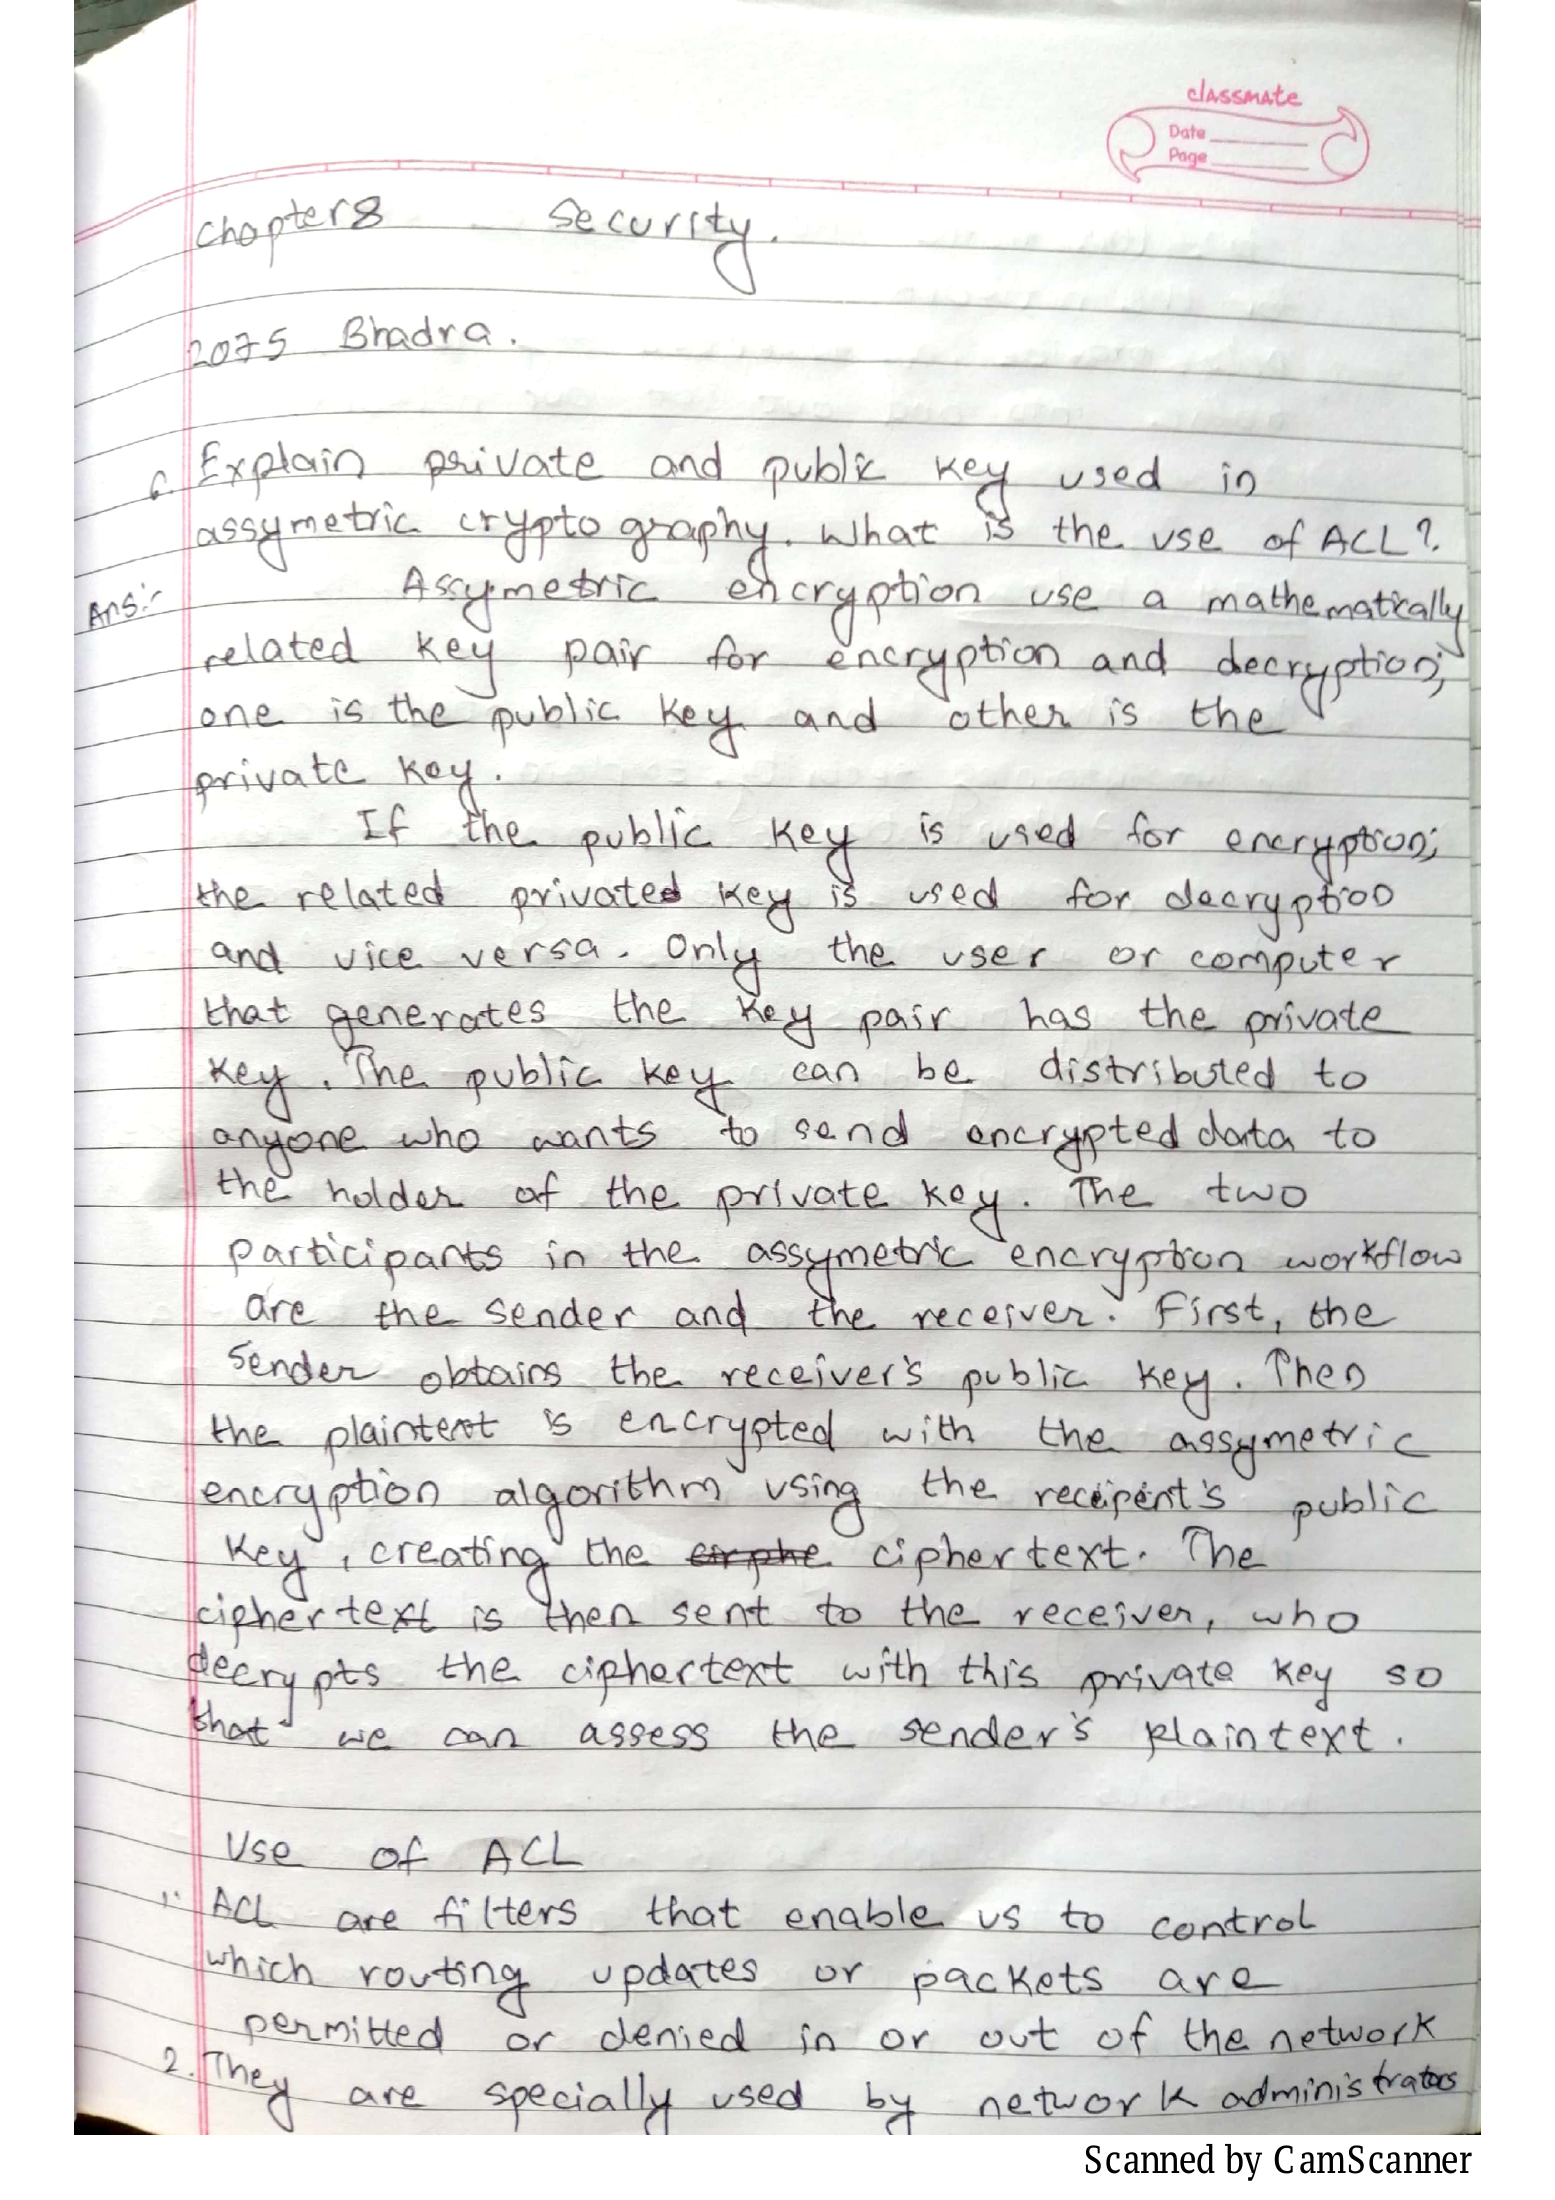 classmate
Date
Page
Chapter 8 Security.
2075 Bhadra.
6. Explain private and public key used in
assymetric cryptography. What is the use of ACL?
Ans:- Assymetric encryption use a mathematically
related key pair for encryption and decryption;
one is the public key and other is the
private key.
If the public key is used for encryption;
the related privated key is used for decryption
and vice versa. Only the user or computer
that generates the key pair has the private
key. The public key can be distributed to
anyone who wants to send encrypted data to
the holder of the private key. The two
participants in the assymetric encryption workflow
are the sender and the receiver. First, the
sender obtains the receiver's public key. Then
the plaintext is encrypted with the assymetric
encryption algorithm using the recipent's public
key, creating the ciphertext. The
ciphertext is then sent to the receiver, who
decrypts the ciphertext with this private key so
that we can assess the sender's plaintext.
Use of ACL
1. ACL are filters that enable us to control
which routing updates or packets are
permitted or denied in or out of the network
2. They are specially used by network administrators
Scanned by CamScanner